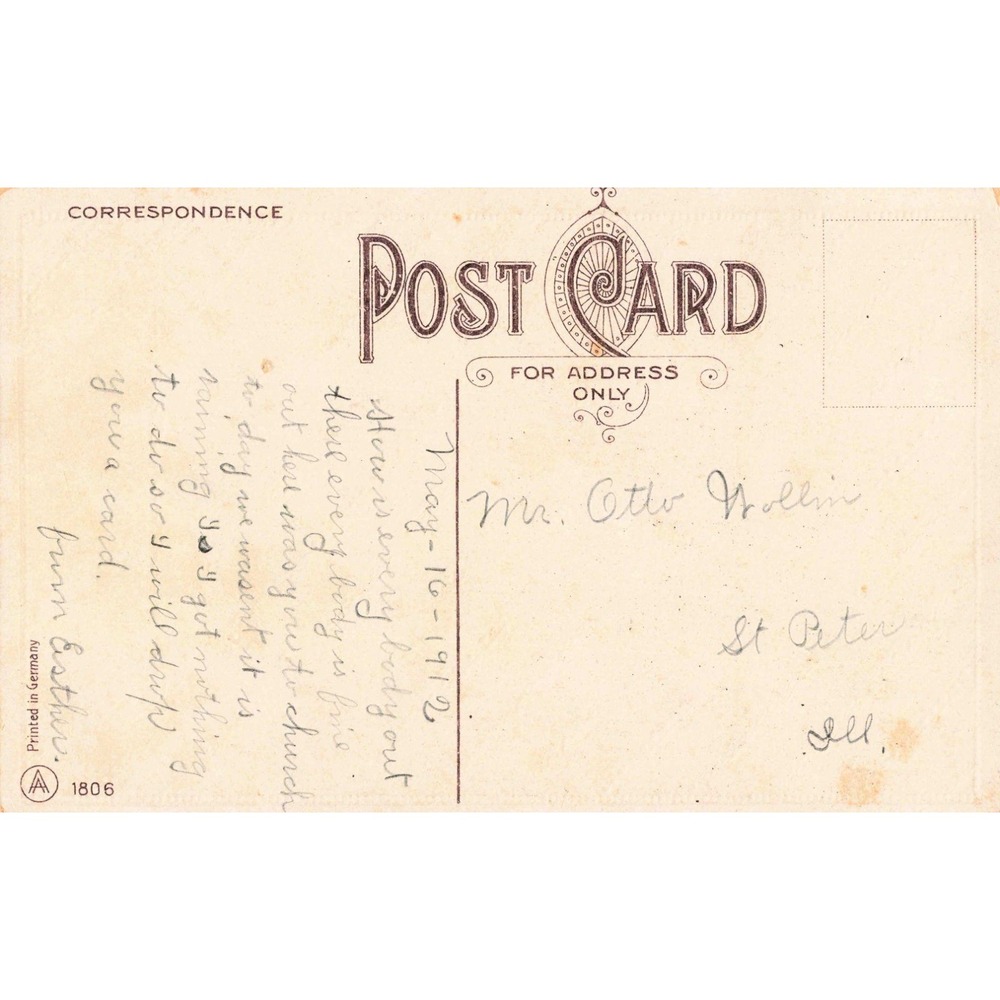 CORRESPONDENCE
POST CARD
FOR ADDRESS
ONLY
May-16-1912
How is every body out
there every body is fine
out here was you to church
to day we wasent it is
raining I got nothing
to do so I will drop
you a card.
from Esther.
Mr. Otto Wollin
St Peter
Ill.
Printed in Germany
AA 1806